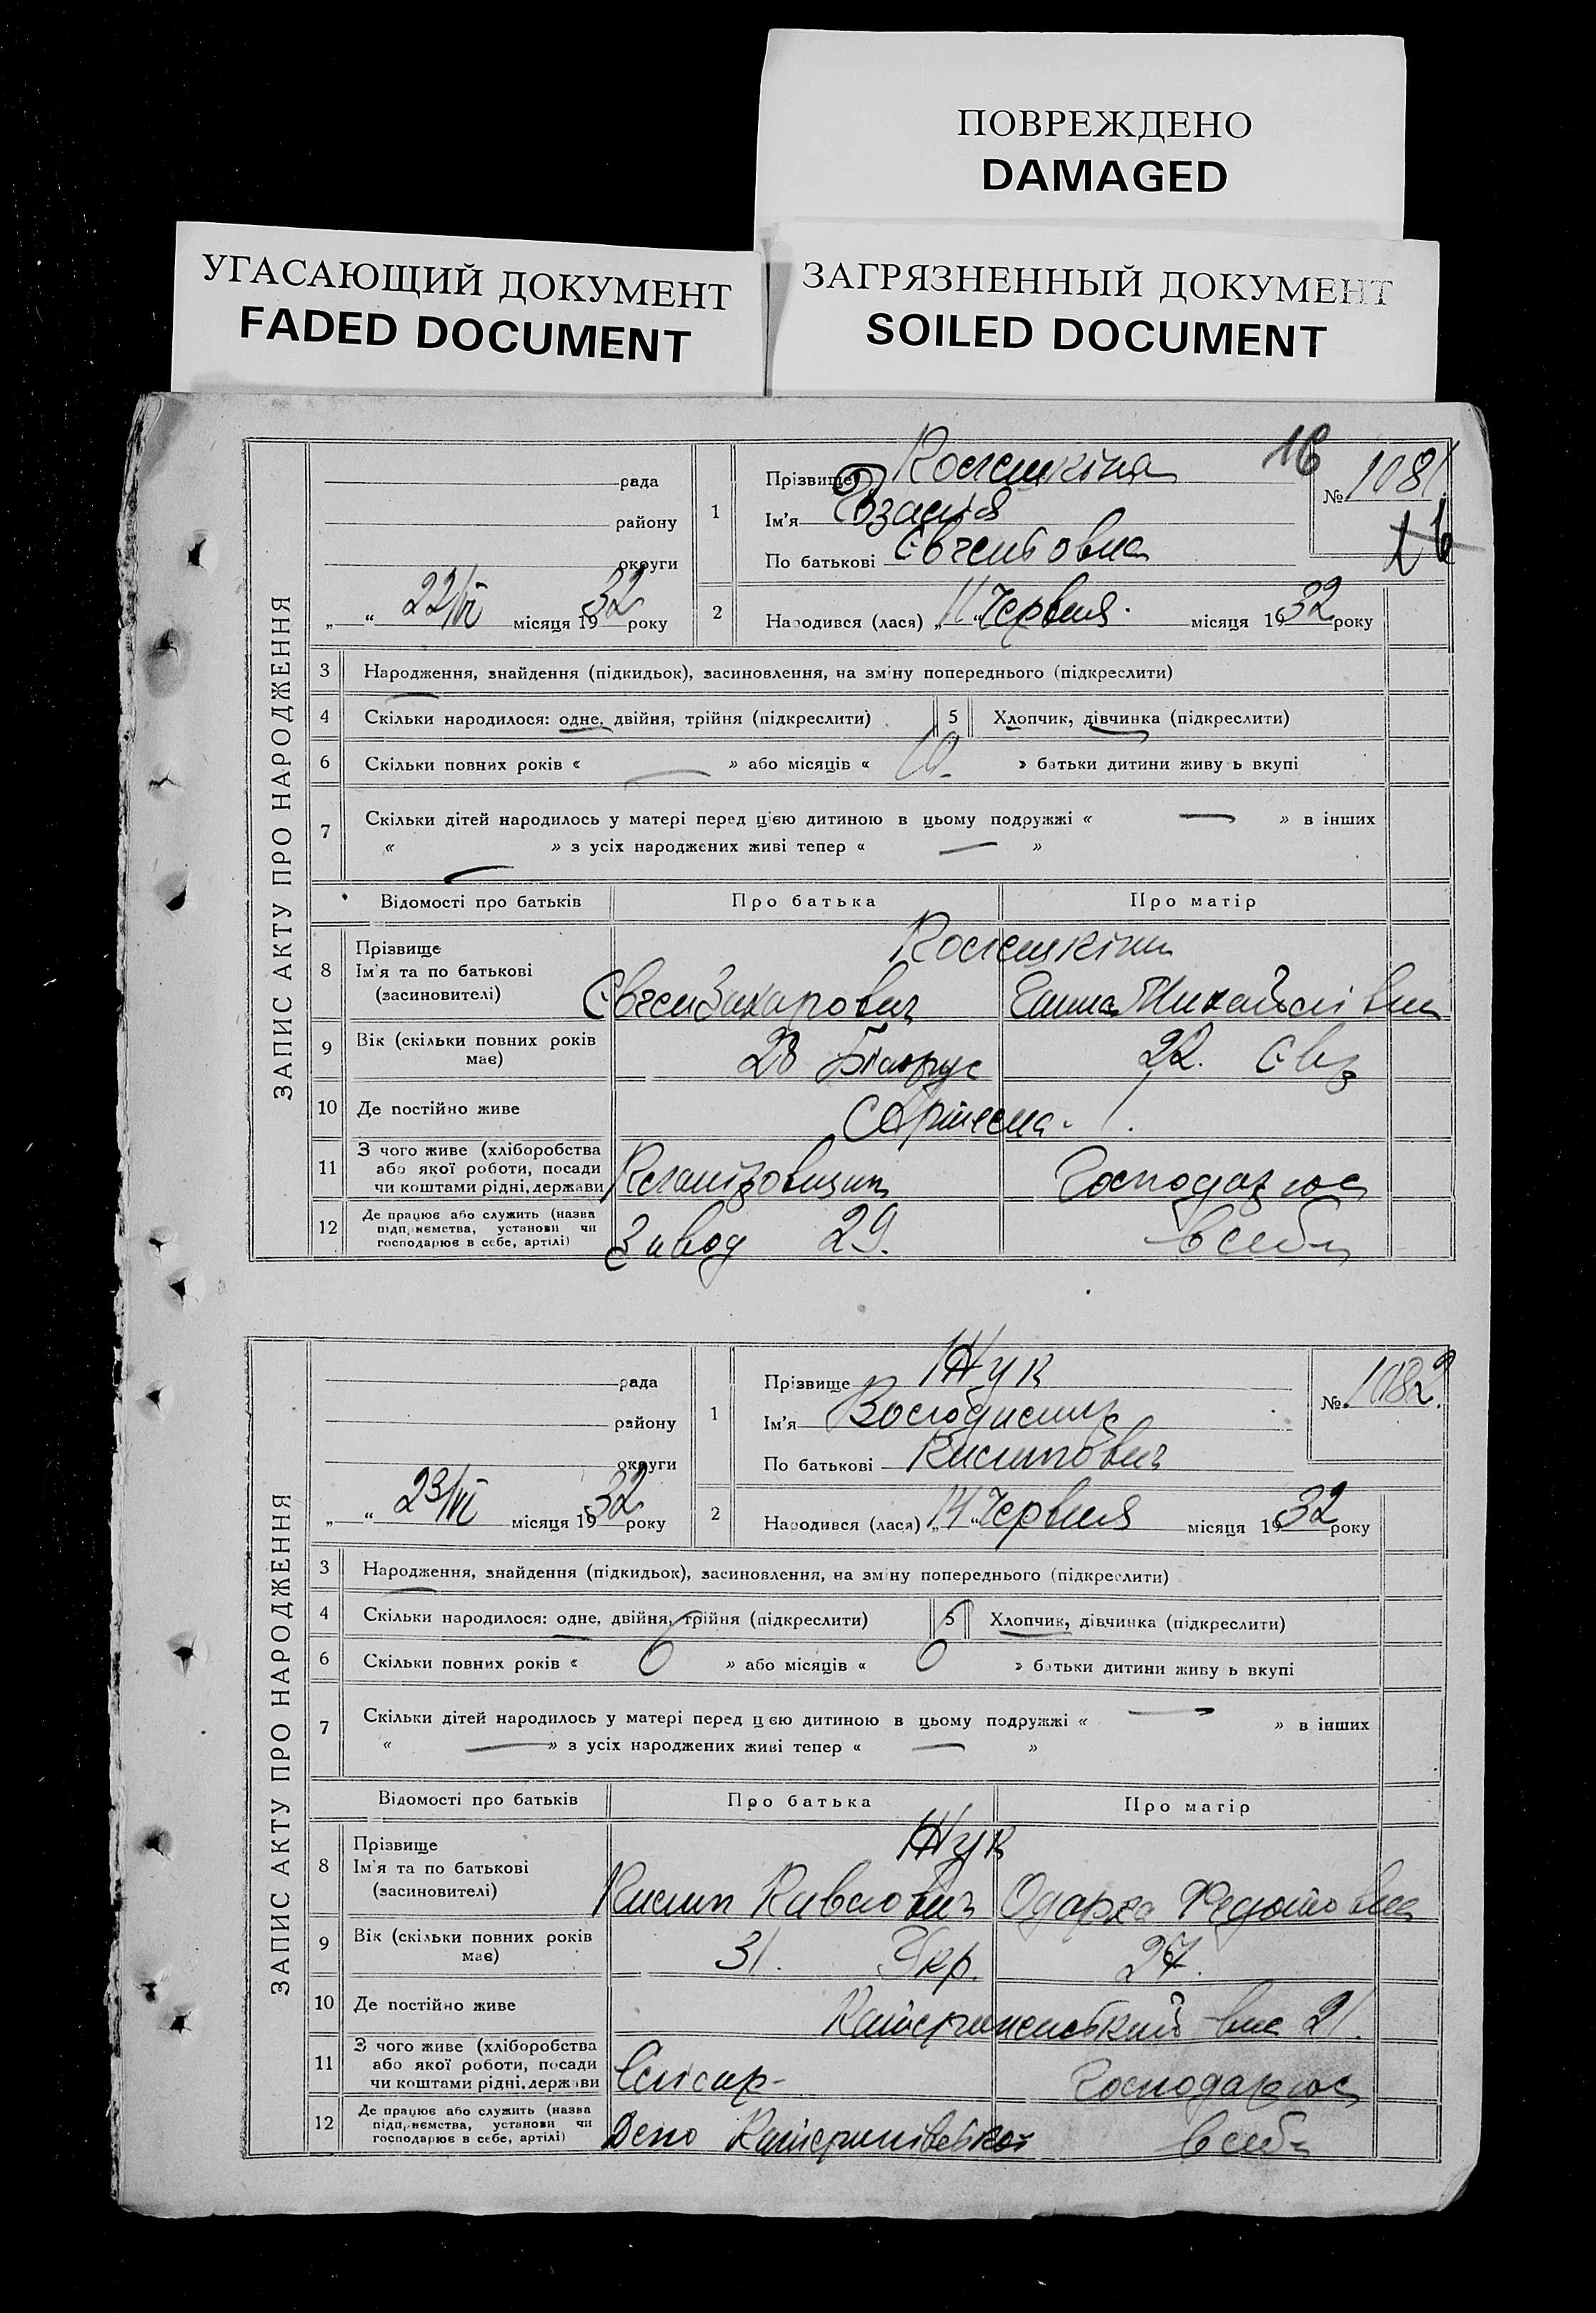 ПОВРЕЖДЕНО
DAMAGED
УГАСАЮЩИЙ ДОКУМЕНТ
FADED DOCUMENT
ЗАГРЯЗНЕННЫЙ ДОКУМЕНТ
SOILED DOCUMENT
ЗАПИС АКТУ ПРО НАРОДЖЕННЯ
рада
району
округи
„ “ 22/VI місяця 1932 року
16
1 Прізвище
Ім'я
По батькові
№ 1081
16
2 Народився (лася) „11“ Червня місяця 1932 року
3 Народження, знайдення (підкидьок), засиновлення, на зміну попереднього (підкреслити)
4 Скільки народилося: одне, двійня, трійня (підкреслити)
5 Хлопчик, дівчинка (підкреслити)
6 Скільки повних років « » або місяців « 10 » батьки дитини живуть вкупі
7 Скільки дітей народилось у матері перед цією дитиною в цьому подружжі « — » в інших
« — » з усіх народжених живі тепер « — »
Відомості про батьків Про батька Про матір
8 Прізвище
Ім'я та по батькові
(засиновителі)
Євген Захарович Ганна Михайлівна
9 Вік (скільки повних років
має)
28 Білорус 22. Євр
10 Де постійно живе
11 З чого живе (хліборобства
або якої роботи, посади
чи коштами рідні, держави
Господарює
12 Де працює або служить (назва
підприємства, установи чи
господарює в себе, артілі)
Завод 29. в себе
ЗАПИС АКТУ ПРО НАРОДЖЕННЯ
рада
району
округи
„ “ 23/VI місяця 1932 року
1 Прізвище Жук
Ім'я Володимир
По батькові Килипович
№ 1082
2 Народився (лася) „14“ Червня місяця 1932 року
3 Народження, знайдення (підкидьок), засиновлення, на зміну попереднього (підкреслити)
4 Скільки народилося: одне, двійня, трійня (підкреслити)
5 Хлопчик, дівчинка (підкреслити)
6 Скільки повних років « 6 » або місяців « 6 » батьки дитини живуть вкупі
7 Скільки дітей народилось у матері перед цією дитиною в цьому подружжі « — » в інших
« — » з усіх народжених живі тепер « — »
Відомості про батьків Про батька Про матір
8 Прізвище
Ім'я та по батькові
(засиновителі)
Жук
Одарка Федотовна
9 Вік (скільки повних років
має)
31. Укр. 27.
10 Де постійно живе
21.
11 З чого живе (хліборобства
або якої роботи, посади
чи коштами рідні, держави
Слісар Господарює
12 Де працює або служить (назва
підприємства, установи чи
господарює в себе, артілі)
Депо в себе